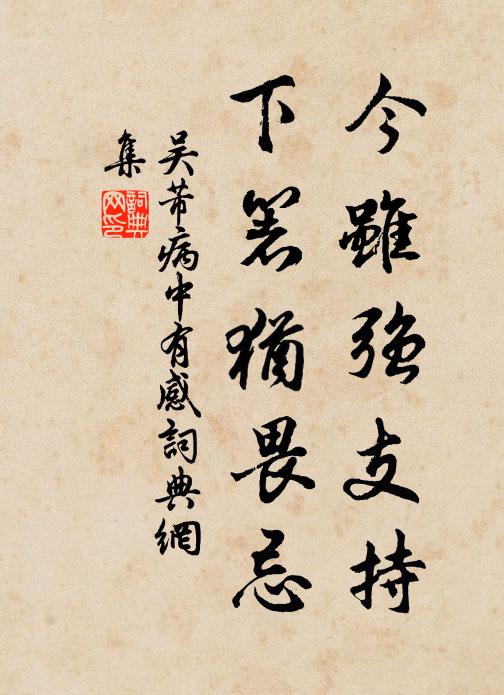 今雖強支持
下箸猶畏忌
吳芾病中有感詞典網
集
詞典
网印